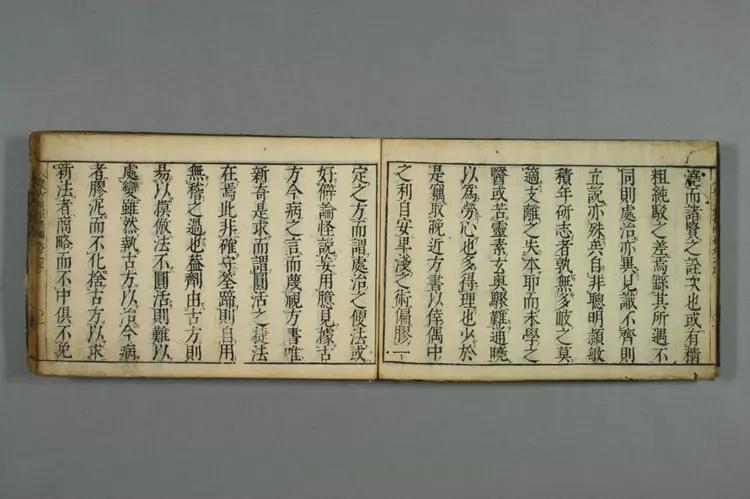 而諸賢之詮次也或有精
粗純駁之差焉繇其所遇不
同則處治亦異見識不齊則
立說亦殊矣自非聰明頴敏
積年研志者孰無多岐之莫
適支離之失本耶而末學之
醫或苦靈素玄奥艱難通曉
以爲勞心也多得理也少於
是竊取晚近方書以倖偶中
之利自安卑淺之術偏膠一
定之方而謂處治之便法或
好僻論怪說妄用臆見據古
方今病之言而蔑視方書唯
新奇是求而謂圓活之捷法
在焉此非確守筌蹄則自用
無稽之過也葢劑由古方則
易以模倣法不圓活則難以
處變雖然執古方以治今病
者膠泥而不化捨古方以求
新法者商略而不中俱不免